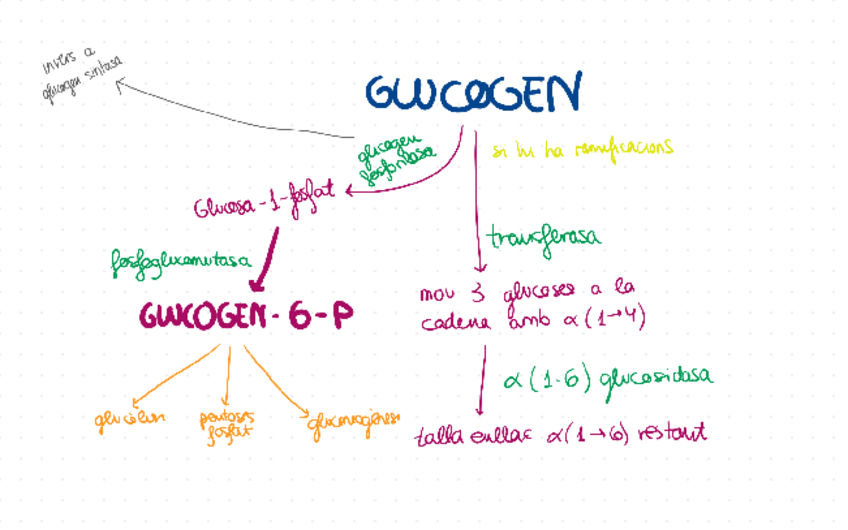 invers a
glucogen sintasa
GLUCOGEN
glicogen
fosforilasa
si hi ha ramificacions
Glucosa-1-fosfat
transferasa
fosfoglucomutasa
mou 3 glucoses a la
cadena amb α(1→4)
GLUCOGEN-6-P
α(1-6) glucosidasa
glucòlisi
pentoses
fosfat
gluconeogènesi
talla enllaç α(1→6) restant